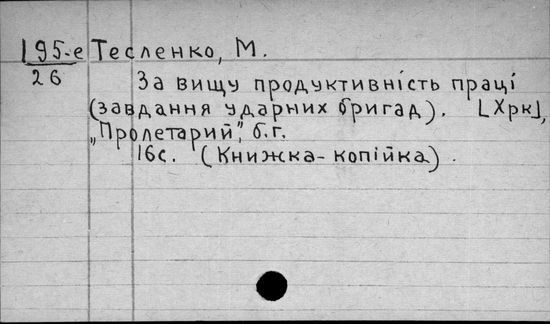 195-е Тесленко, М.
26
За вищу продуктивність праці
(завдання ударних бригад). [Хрк],
„Пролетарий", б.г.
16с. (Книжка-копійка).